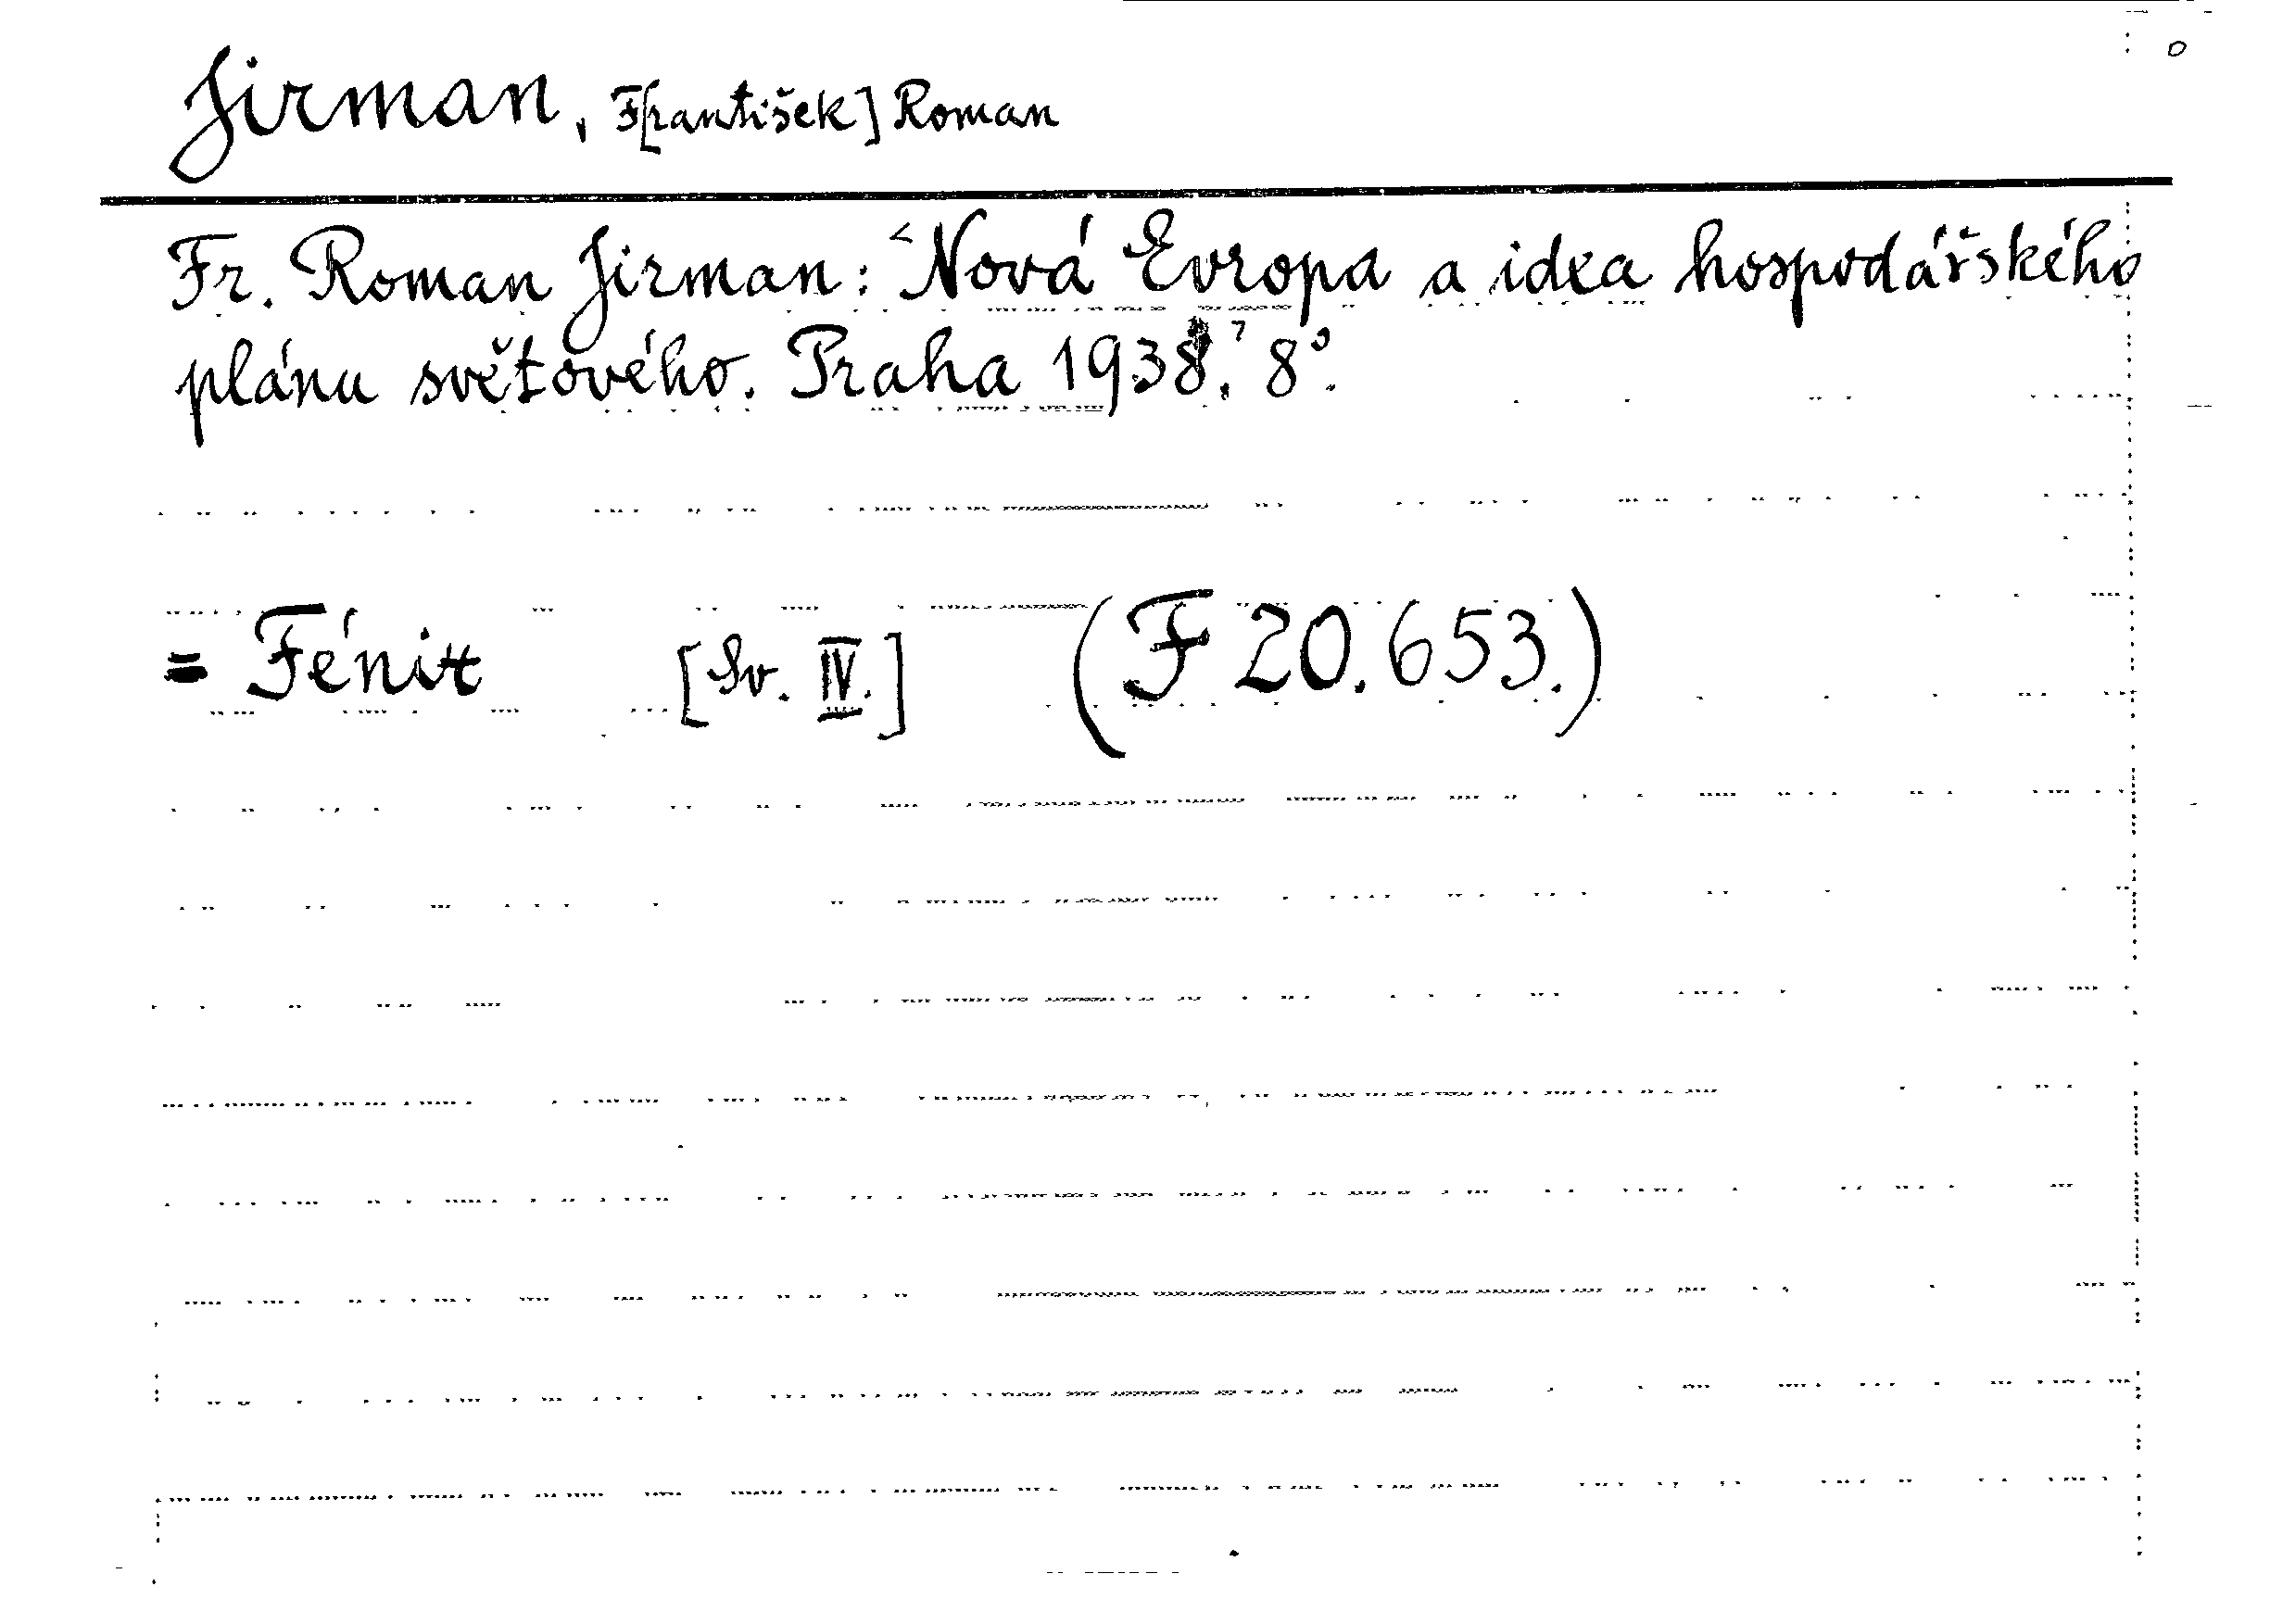 Jirman, F[rantišek] Roman
Fr. Roman Jirman: <Nová Evropa a idea hospodářského
plánu světového. Praha 1938.> 8°.
= Fénix [Sv. IV.] (F 20.653.)